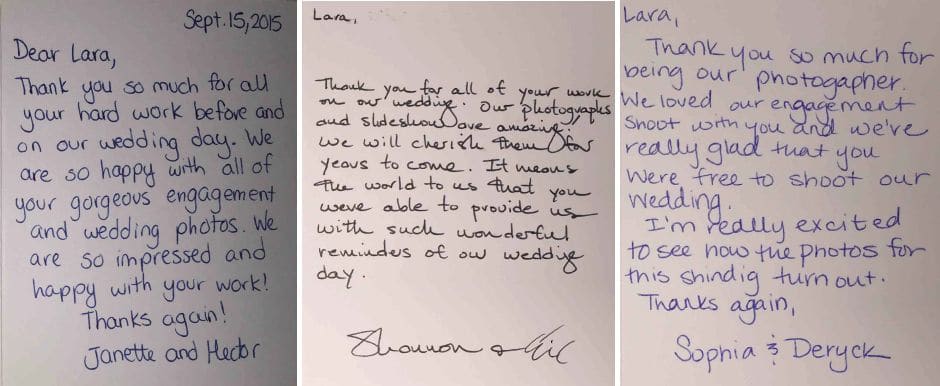 Sept. 15, 2015
Dear Lara,
Thank you so much for all
your hard work before and
on our wedding day. We
are so happy with all of
your gorgeous engagement
and wedding photos. We
are so impressed and
happy with your work!
Thanks again!
Janette and Hector
Lara,
Thank you for all of your work
on our wedding. Our photographs
and slideshow are amazing!
We will cherish them for
years to come. It means
the world to us that you
were able to provide us
with such wonderful
reminders of our wedding
day.
Shannon &
Lara,
Thank you so much for
being our photogapher.
We loved our engagement
shoot with you and we've
really glad that you
were free to shoot our
wedding.
I'm really excited
to see how the photos for
this shindig turn out.
Thanks again,
Sophia & Deryck